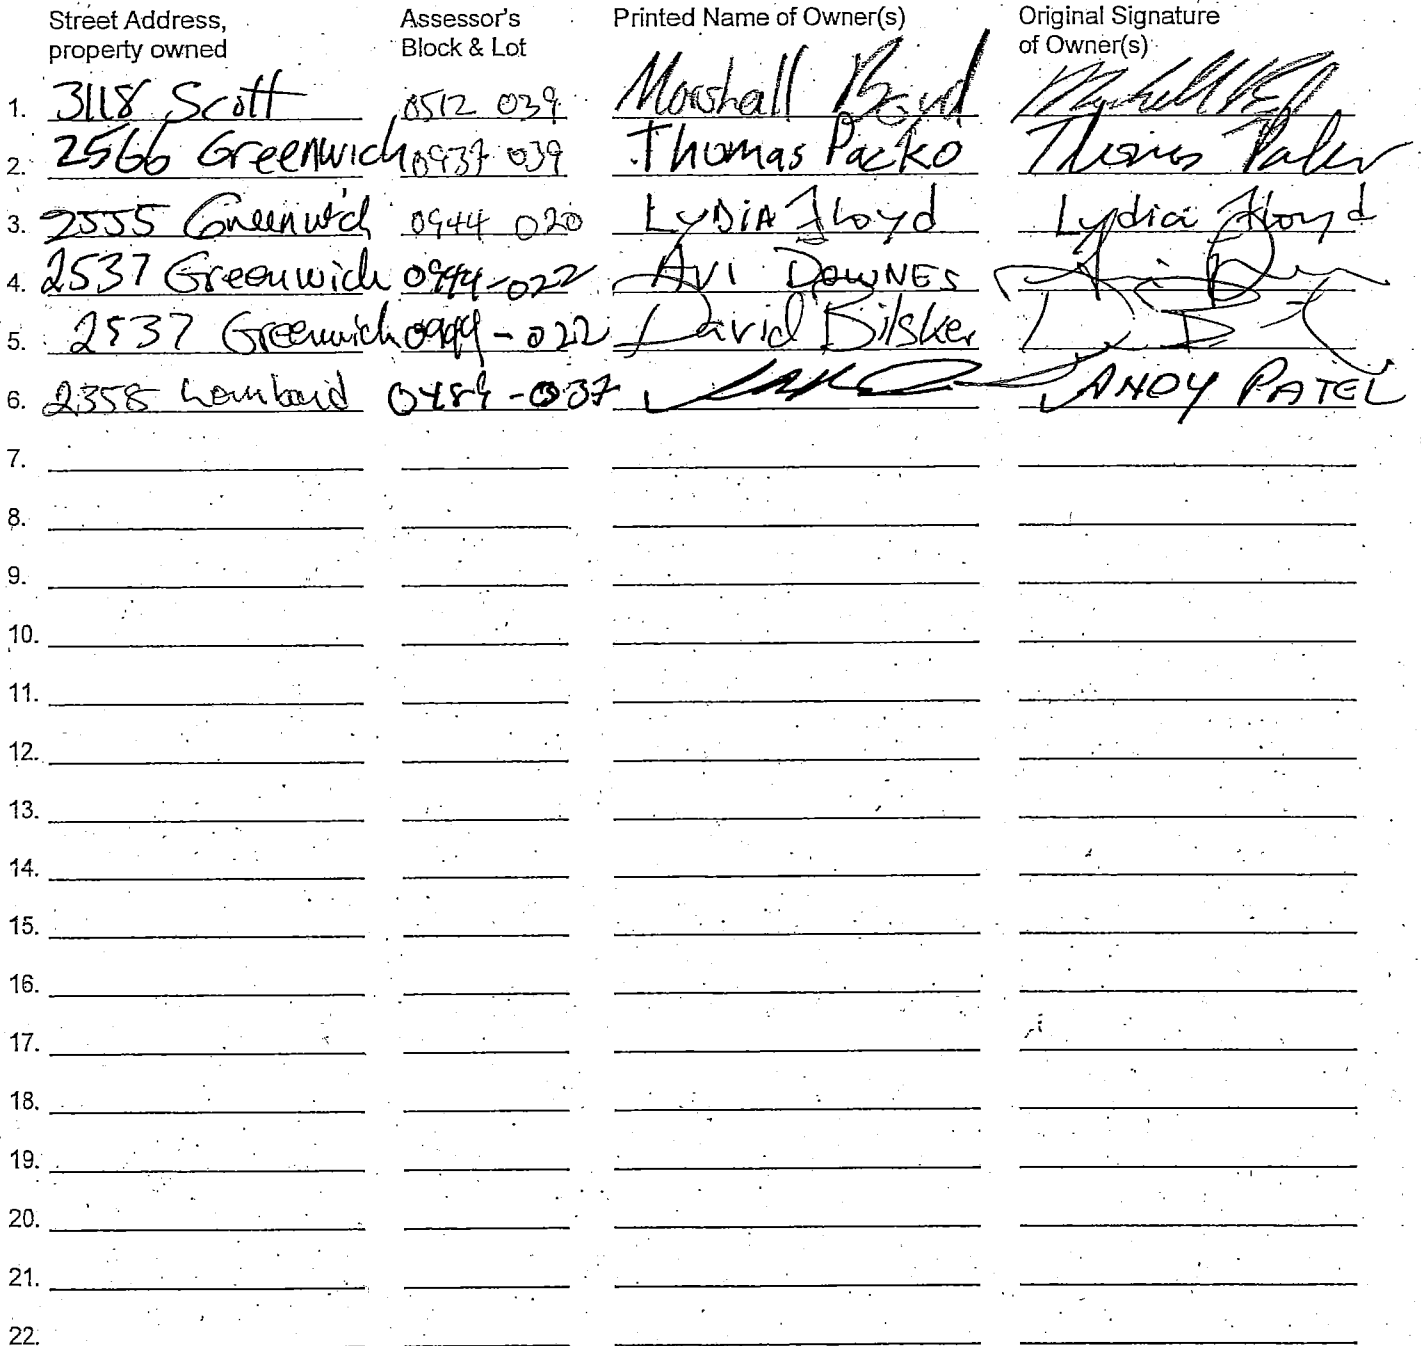 Street Address, property owned Assessor's Block & Lot Printed Name of Owner(s) Original Signature of Owner(s)
1. 3118 Scott 0512 039 Marshall Boyd
2. 2566 Greenwich 0937 039 Thomas Packo Thomas Packo
3. 2555 Greenwich 0944 020 Lydia Floyd Lydia Floyd
4. 2537 Greenwich 0944-022 Avi Downes
5. 2537 Greenwich 0944-022 David Bilsker
6. 2358 Lombard 0489-037 ANDY PATEL
7.
8.
9.
10.
11.
12.
13.
14.
15.
16.
17.
18.
19.
20.
21.
22.